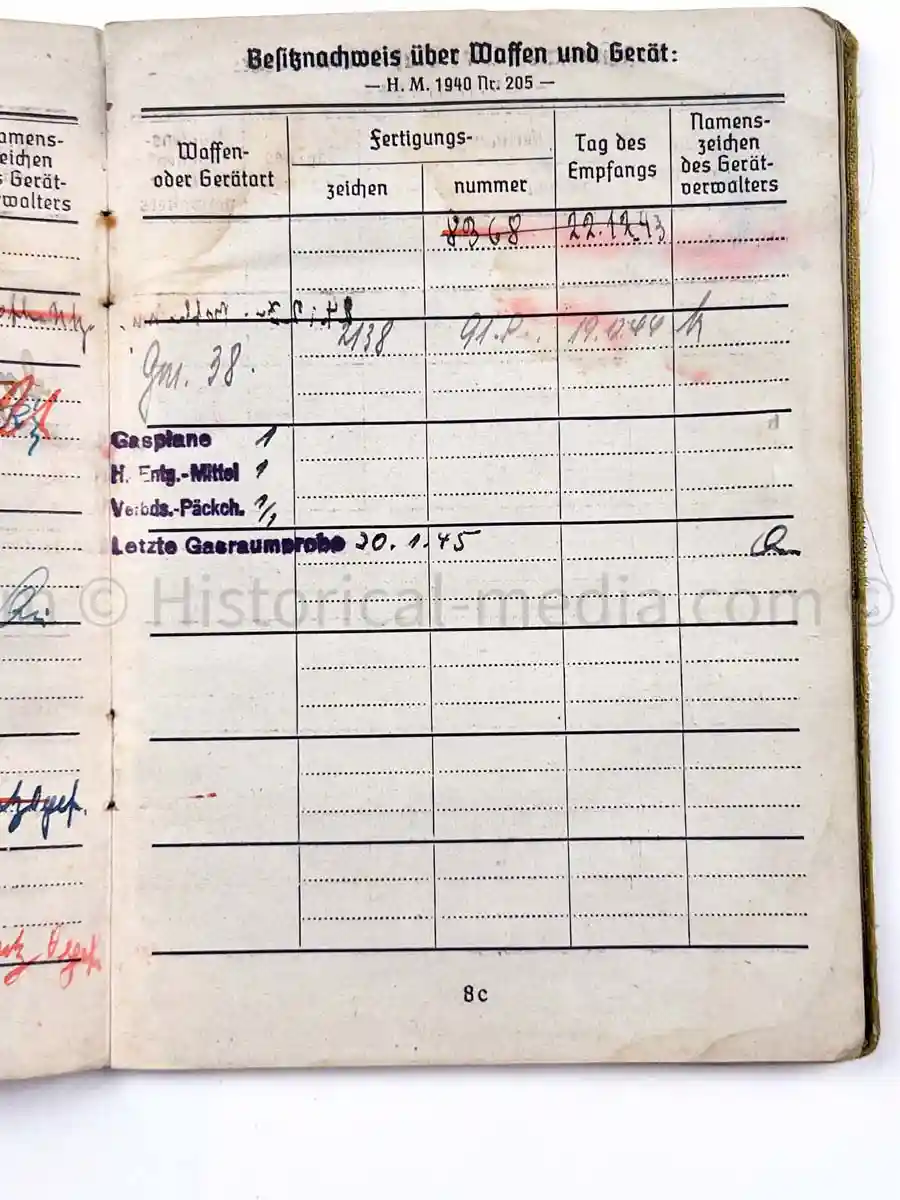 Besitznachweis über Waffen und Gerät:
— H. M. 1940 Nr. 205 —
Waffen-
oder Gerätart
Fertigungs-
zeichen
nummer
Tag des
Empfangs
Namens-
zeichen
des Gerät-
verwalters
amens-
eichen
s Gerät-
rwalters
8368 22.12.43
Gm. 38. 2138
Gasplane 1
H. Entg.-Mittel 1
Verbds.-Päckch. 1/1
Letzte Gasraumprobe 20.1.45
© Historical-media.com ©
8c